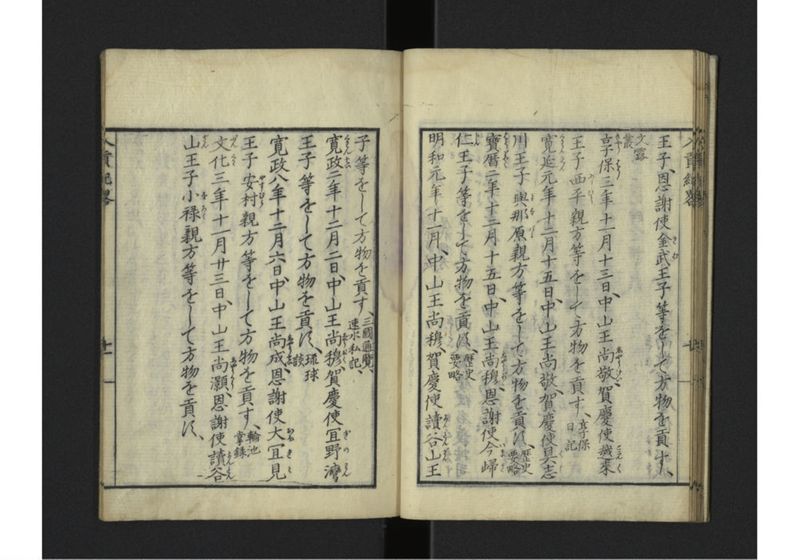 王子、恩謝使金武王子等をして方物を貢す、
文露叢
享保三年十一月十三日、中山王尚敬賀慶使越來
王子西平親方等をして方物を貢す、享保日記
寛延元年十二月十五日、中山王尚敬賀慶使具志
川王子與那原親方等をして方物を貢す、歴史要略
寳暦二年十二月十五日、中山王尚穆恩謝使今歸
仁王子等をして方物を貢す、歴史要略
明和元年十一月、中山王尚穆賀慶使讀谷山王
子等をして方物を貢す、三國通覽、速水私記、
寛政二年十二月二日、中山王尚穆賀慶使宜野灣
王子等をして方物を貢す、琉球談
寛政八年十二月六日、中山王尚成恩謝使大宜見
王子安村親方等をして方物を貢す、輪池掌録
文化三年十一月廿三日、中山王尚灝恩謝使讀谷
山王子小禄親方等をして方物を貢す、
入貢紀畧